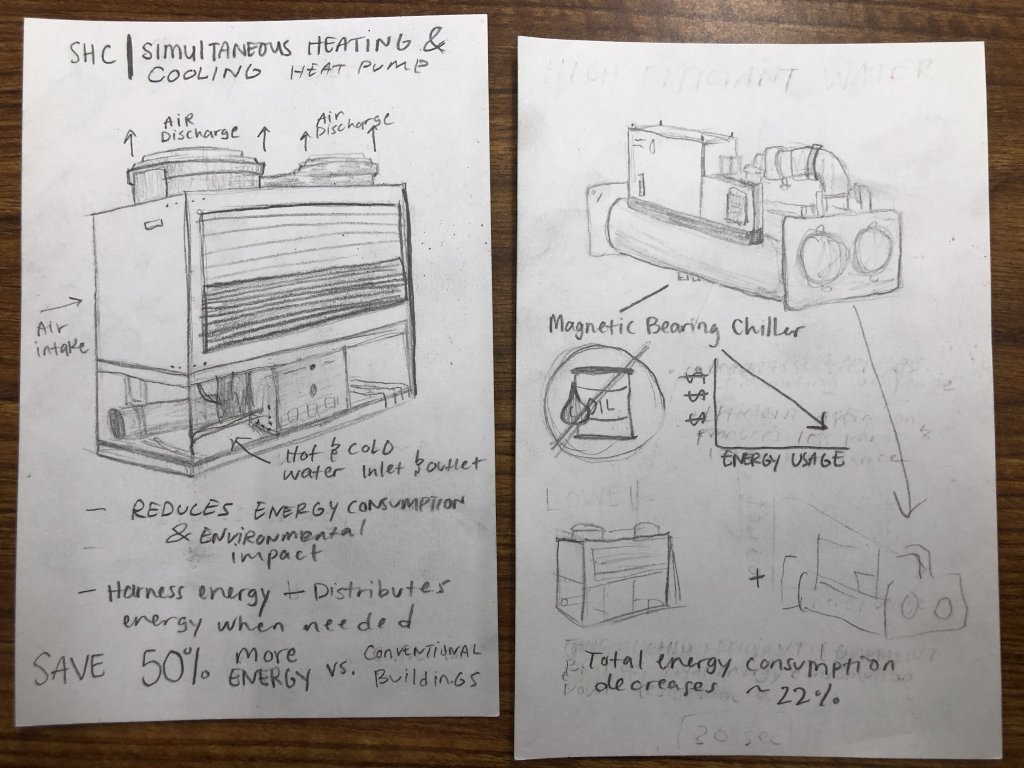 SHC | SIMULTANEOUS HEATING &
COOLING HEAT PUMP
AIR
Discharge
Air
Discharge
Air
intake
Hot & COLD
water Inlet & outlet
- REDUCES ENERGY CONSUMPTION
& ENVIRONMENTAL
impact
- Harness energy + Distributes
energy when needed
SAVE 50% more
ENERGY vs. CONVENTIONAL
BUILDINGS
HIGH EFFICIANT WATER
Magnetic Bearing Chiller
OIL
$
$
$
ENERGY USAGE
LOWELL
+
Total energy consumption
decreases ~ 22%
30 sec